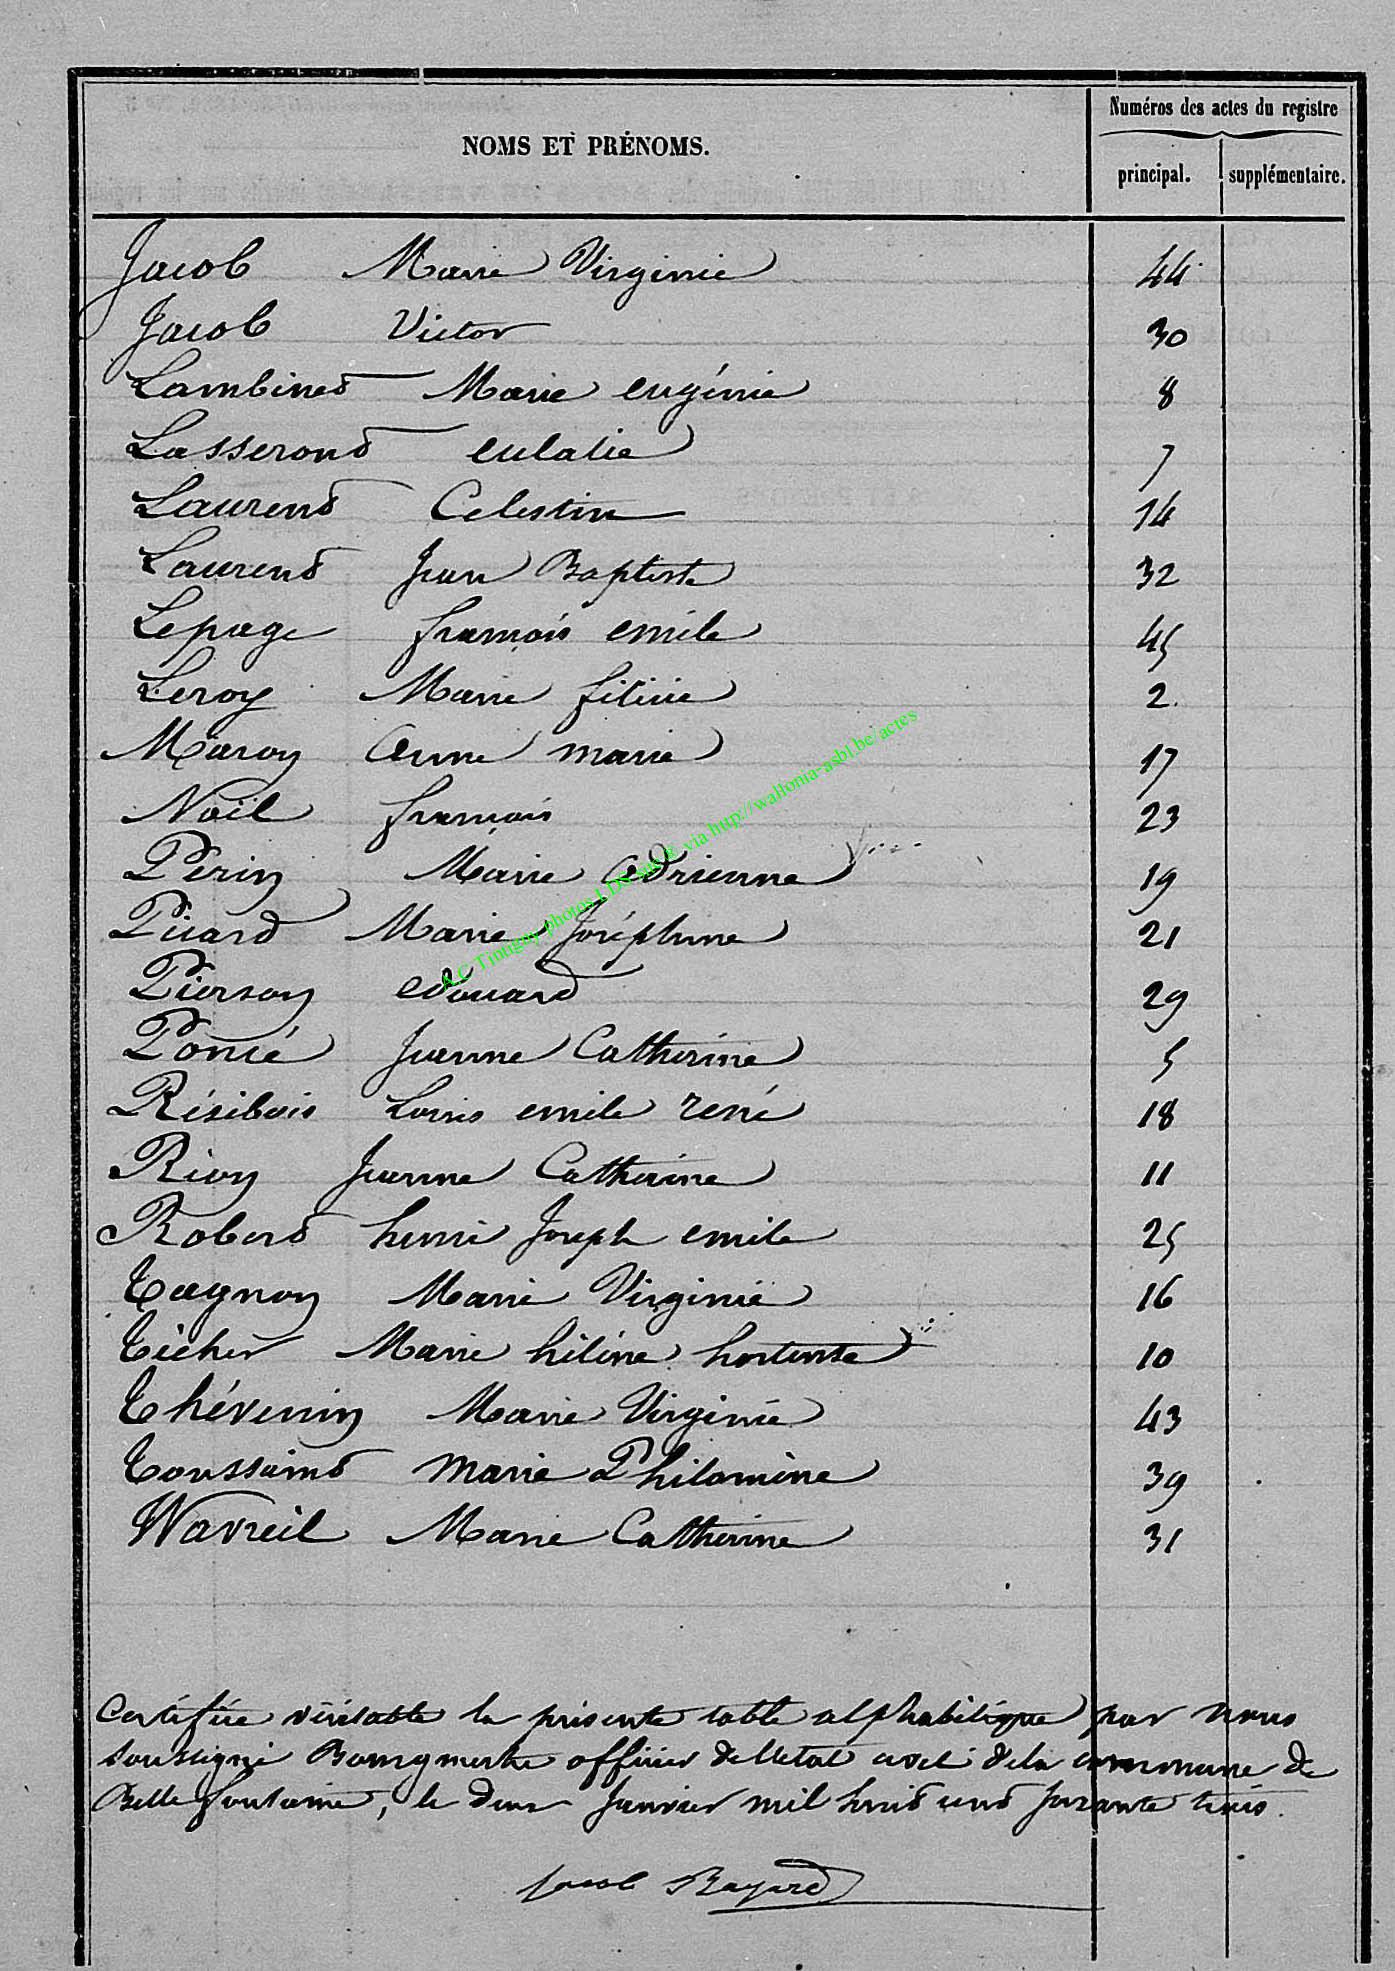 Numéros des actes du registre
NOMS ET PRÉNOMS.
principal. supplémentaire.
Jacob Marie Virginie 44
Jacob Victor 30
Lambinet Marie eugénie 8
Lasseront eulalie 7
Laurent Celestin 14
Laurent Jean Baptiste 32
Lepage françois emile 45
Leroy Marie félicie 2
Maroy Anne marie 17
Noël françois 23
Périn Marie Adrienne 19
Picard Marie Joséphine 21
Pierson edouard 29
Poncé Jeanne Catherine 5
Résibois Louis emile rené 18
Rion Jeanne Catherine 11
Robert henri Joseph emile 25
Tagnon Marie Virginie 16
Técher Marie héléne hortense 10
Thévenin Marie Virginie 43
Toussaint marie Philomène 39
Wavreil Marie Catherine 31
A.C Tintigny photos LDS via http://wallonia-asbl.be/actes
Certifiée véritable la présente table alphabétique par nous
soussigné Bourgmestre officier de l'etat civil de la commune de
Bellefontaine, le deux Janvier mil huit cent soixante trois.
Jacob Bayard